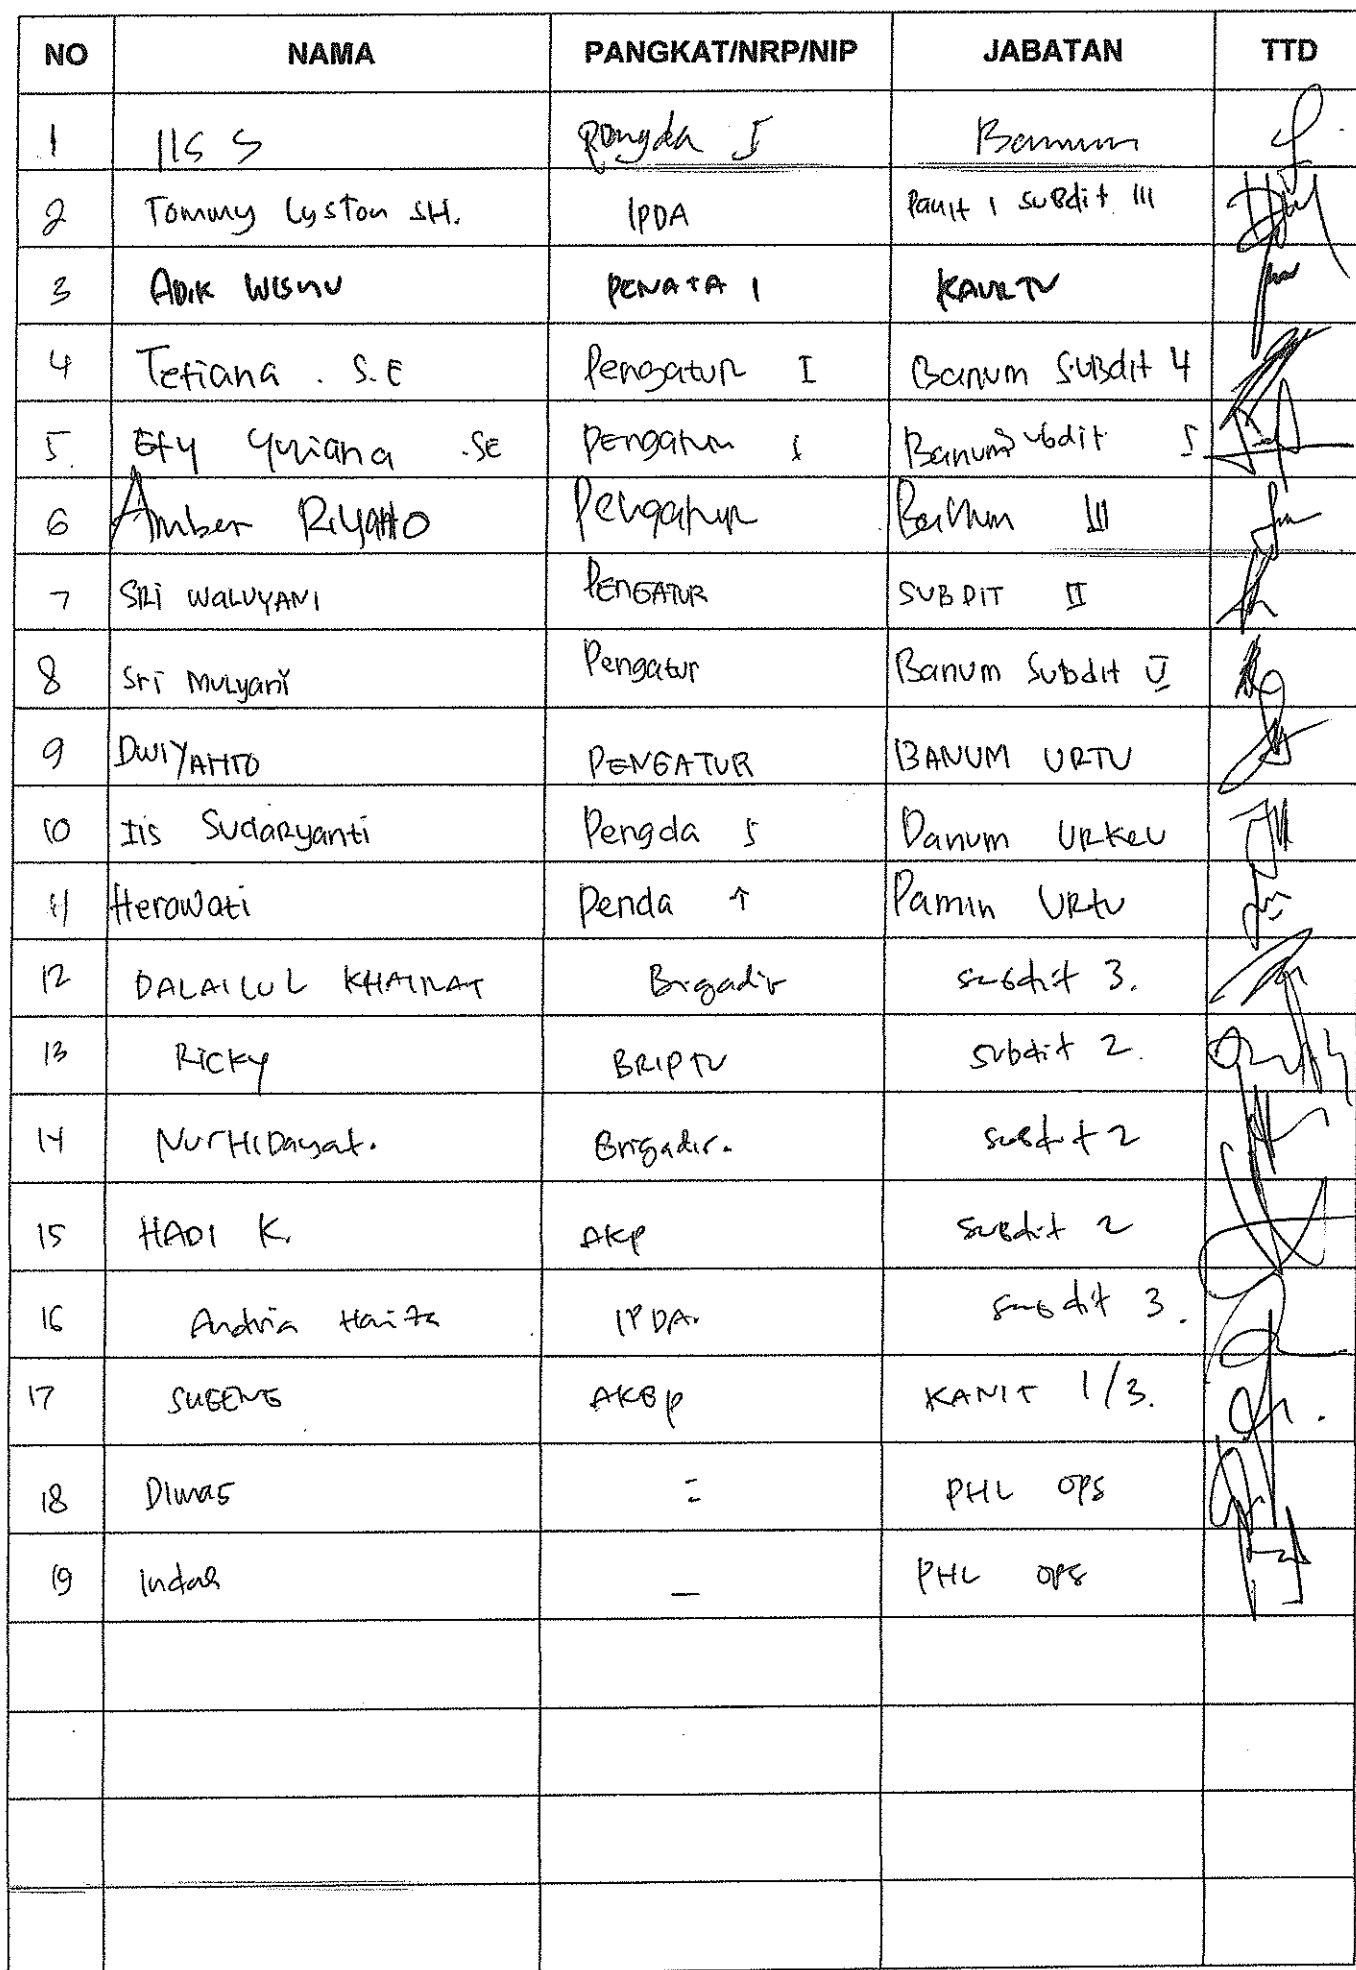 NO NAMA PANGKAT/NRP/NIP JABATAN TTD
1 IIS S Pengda I Banum
2 Tommy Lyston SH. IPDA Panit 1 Subdit III
3 ADIK WISNU PENATA 1 KAURTU
4 Tefiana . S.E Pengatur I Banum Subdit 4
5. Efy Yuliana .SE Pengatur I Banum Subdit 5
6 Amber Riyanto Pengatur Banum III
7 SRI WALUYANI PENGATUR SUBDIT II
8 Sri Mulyani Pengatur Banum Subdit V
9 DWIYANTO PENGATUR BANUM URTU
10 Iis Sudaryanti Pengda Banum URKEU
11 Herawati Penda Pamin URTU
12 DALAILUL KHAIRAT Brigadir Subdit 3.
13 RICKY BRIPTU Subdit 2.
14 NurHidayat. Brigadir. Subdit 2
15 HADI K. AKP Subdit 2
16 Andria IPDA. Subdit 3.
17 SUGENG AKBP KANIT 1/3.
18 Dimas = PHL OPS
19 Indah - PHL OPS